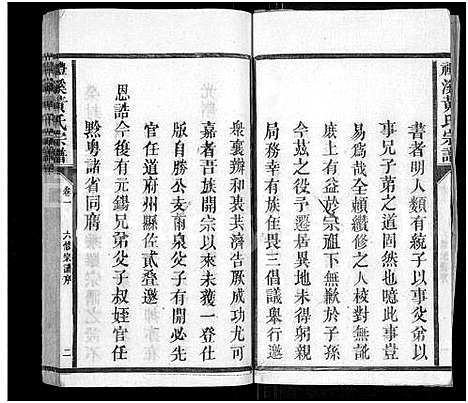 禮溪黃氏宗譜
書者明人類有統子以事父弟以
事兄子弟之道固然也噫此事豈
易為哉全頼纘修之人核對無訛
庶上有益於宗祖下無歉於子孫
今茲之役予遷居異地未得躬親
局務幸有族任畏三倡議舉行邀
衆襄辦和衷共濟告厥成功尤可
嘉者吾族開宗以來未獲一登仕
版自勝公亥南泉父子有開必先
官任道府州縣佐貳疊邀
恩誥今後有元錫兄弟父子叔姪官任
黔粵諸省同府
禮溪黃氏宗譜
卷一
六修宗譜序
二